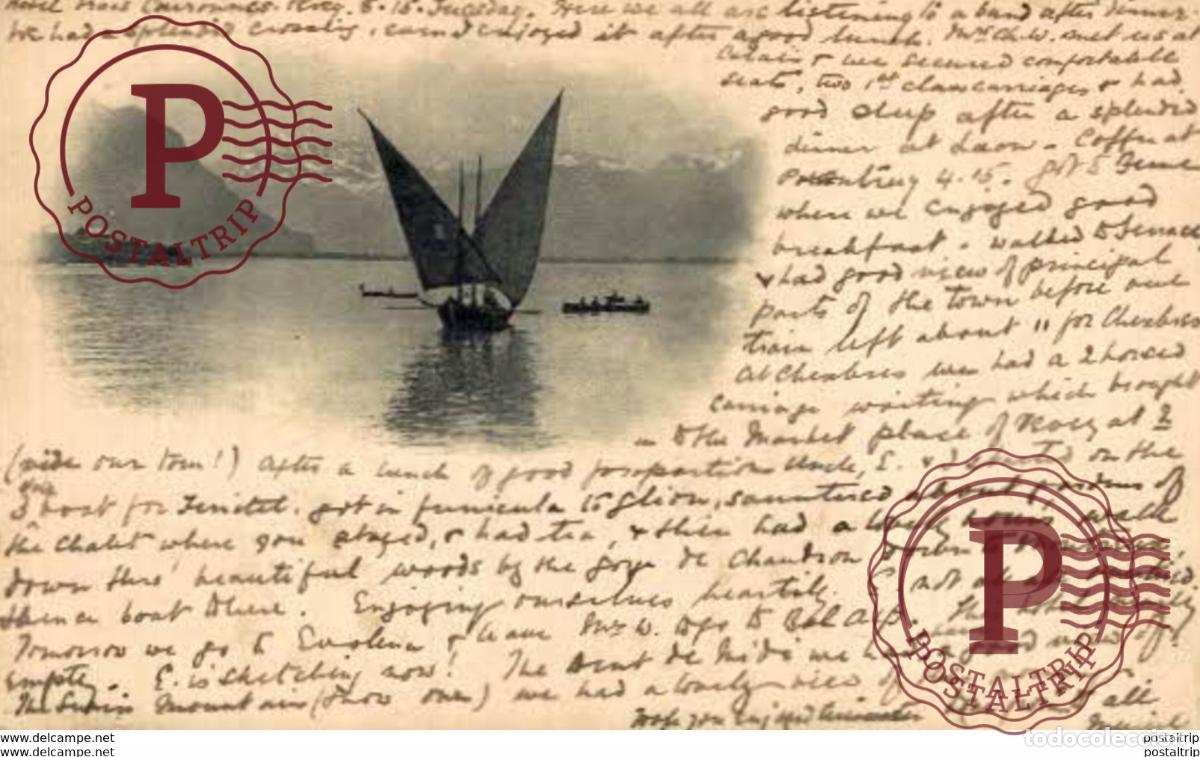 Hotel Trois Couronnes. Vevey. 8-15. Tuesday. Here we all are listening to a band after dinner.
We had splendid crossing, & enjoyed it after a good lunch. Mrs Ch. W. met us at
Calais & we secured comfortable
seats, two 1st class carriages & had
good sleep after a splendid
dinner at Laon. Coffee at
4.15. got to
where we enjoyed good
breakfast. walked to
& had good view of principal
parts of the town before our
train left about 11 for Chexbres
At Chexbres we had a 2 horsed
carriage waiting which brought
us to the Market place of Vevey at 2
(vide our tour!) After a lunch of good proportion Uncle, E. & I started on the
boat for Territet. got in funicular to Glion, sauntered about gardens of
the Chalet where you stayed, & had tea, & then had a lovely walk
down thro' beautiful woods by the gorge de Chaudron
thence boat there. Enjoying ourselves heartily. not
Tomorrow we go to Evolena & leave Mrs W. to go to
empty. E. is sketching now! The Dent du Midi we had view of
The Mountain (Snow one) we had a lovely view of all
Hope you enjoyed
POSTALTRIP
P
POSTALTRIP
P
POSTALTRIP
www.delcampe.net
www.delcampe.net
postaltrip
postaltrip
todocoleccion